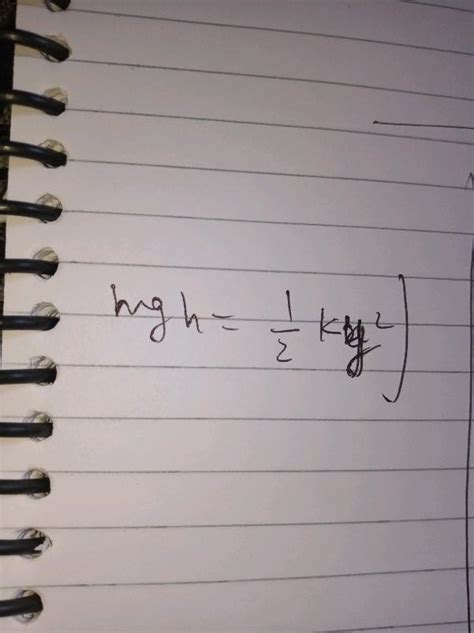 mgh = 1/2 ky²)